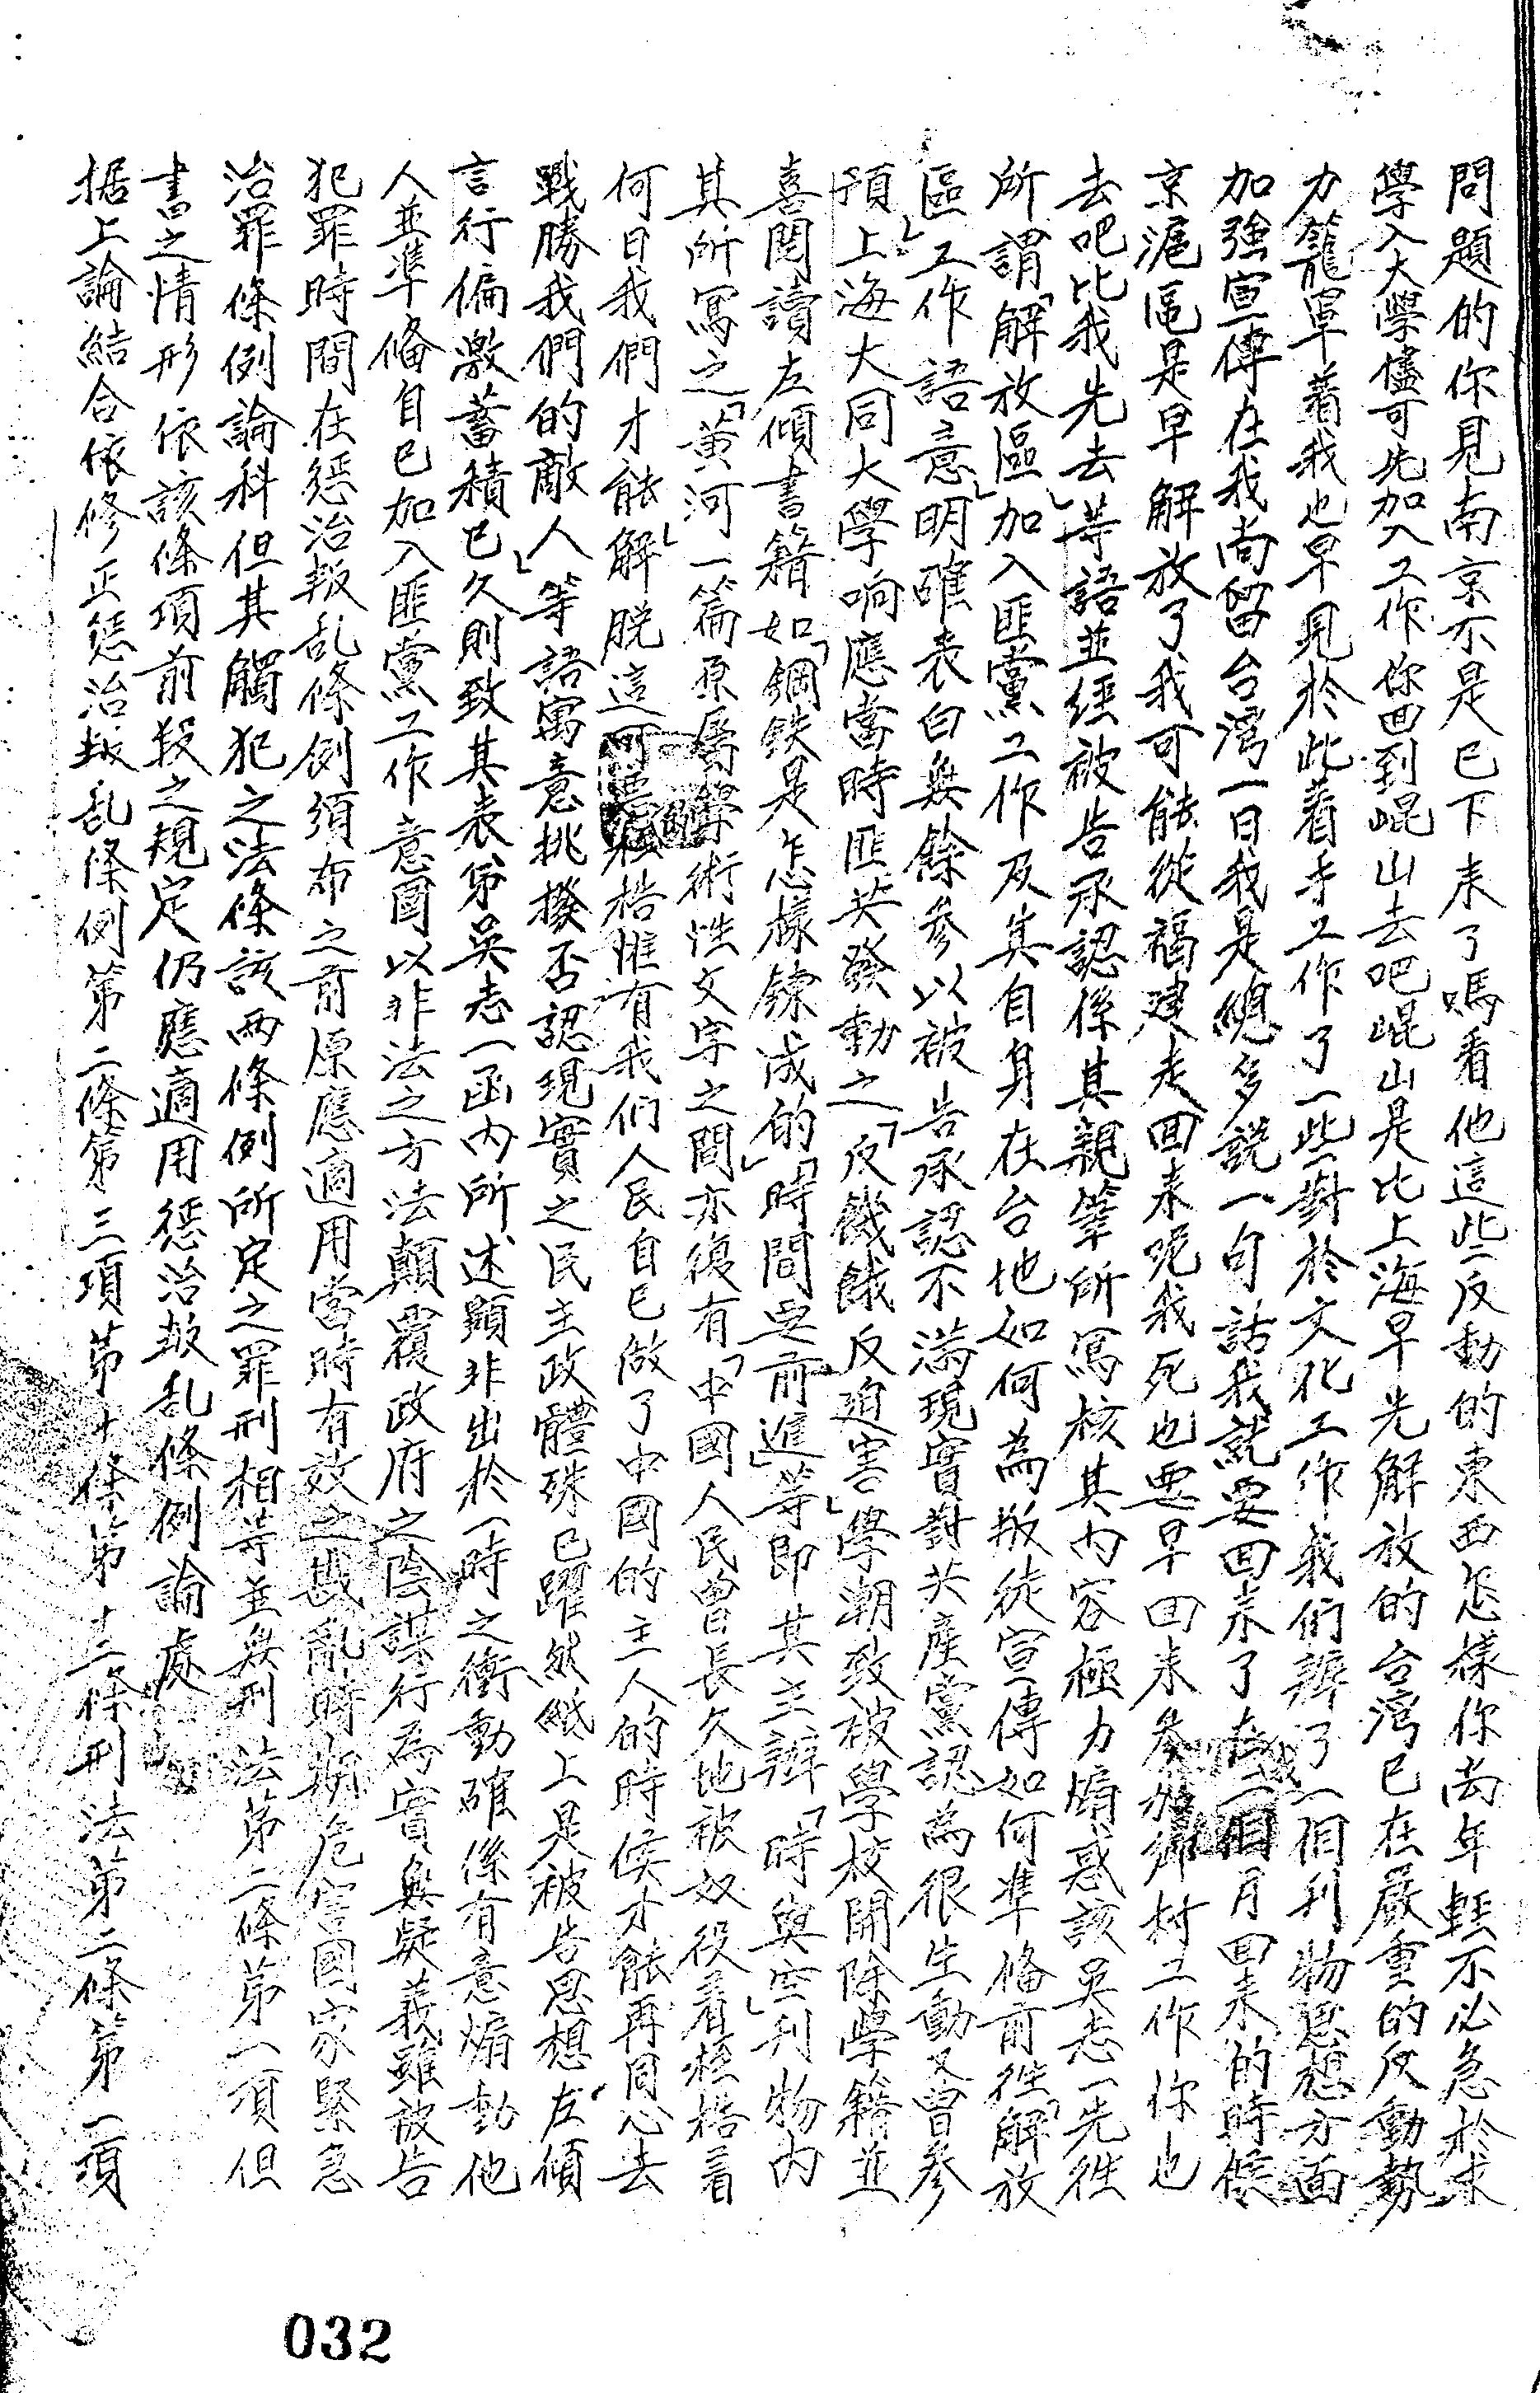 問題的你見南京不是已下来了嗎看他這些反動的東西怎樣你尚年輕不必急於求
學入大學儘可先加入工作你回到崐山去吧崐山是比上海早先解放的台灣已在嚴重的反動勢
力籠罩着我也早見於此着手工作了一些對於文化工作我们辦了一個刋物思想方面
加強宣傳在我尚留台灣一日我是總多説一句話我就要回来了在一個月回来的時候
京滬區是早解放了我可能從福建走回来呢我死也要早回来參加鄉村工作你也
去吧比我先去」等語並經被告承認係其親筆所寫核其内容極力煽惑該吴志一先往
所謂「解放區」加入匪黨工作及其自身在台地如何為叛徒宣傳如何準偹前往「解放
區」工作語意明確表白無餘參以被告承認不滿現實對共產黨認為很生動又曾參
預上海大同大學响應當時匪共發動之「反饑餓反迫害」學潮致被學校開除學籍並
喜閱讀左傾書籍如「鋼鉄是怎樣鍊成的」「時間要前進」等即其主辦「時與空」刋物内
其所寫之「黄河」一篇原屬學術性文字之間亦復有「中國人民曾長久地被奴役着桎梏着
何日我們才能解脱這可惡桎梏惟有我们人民自已做了中國的主人的時候才能再同心去
戰勝我們的敵人」等語寓意挑撥否認現實之民主政體殊已躍然紙上是被告思想左傾
言行偏激蓄積已久則致其表弟吴志一函内所述顯非出於一時之衝動確係有意煽動他
人並準偹自已加入匪黨工作意圖以非法之方法顛覆政府之陰謀行為實無疑義雖被告
犯罪時間在惩治叛乱條例頒布之前原應適用當時有效之戡亂時期危害國家緊急
治罪條例論科但其觸犯之法條該两條例所定之罪刑相等並無刑法第二條第一項但
書之情形依該條項前段之規定仍應適用惩治叛乱條例論處
据上論結合依修正惩治叛乱條例第二條第三項第十條第十二條刑法第二條第一項
032